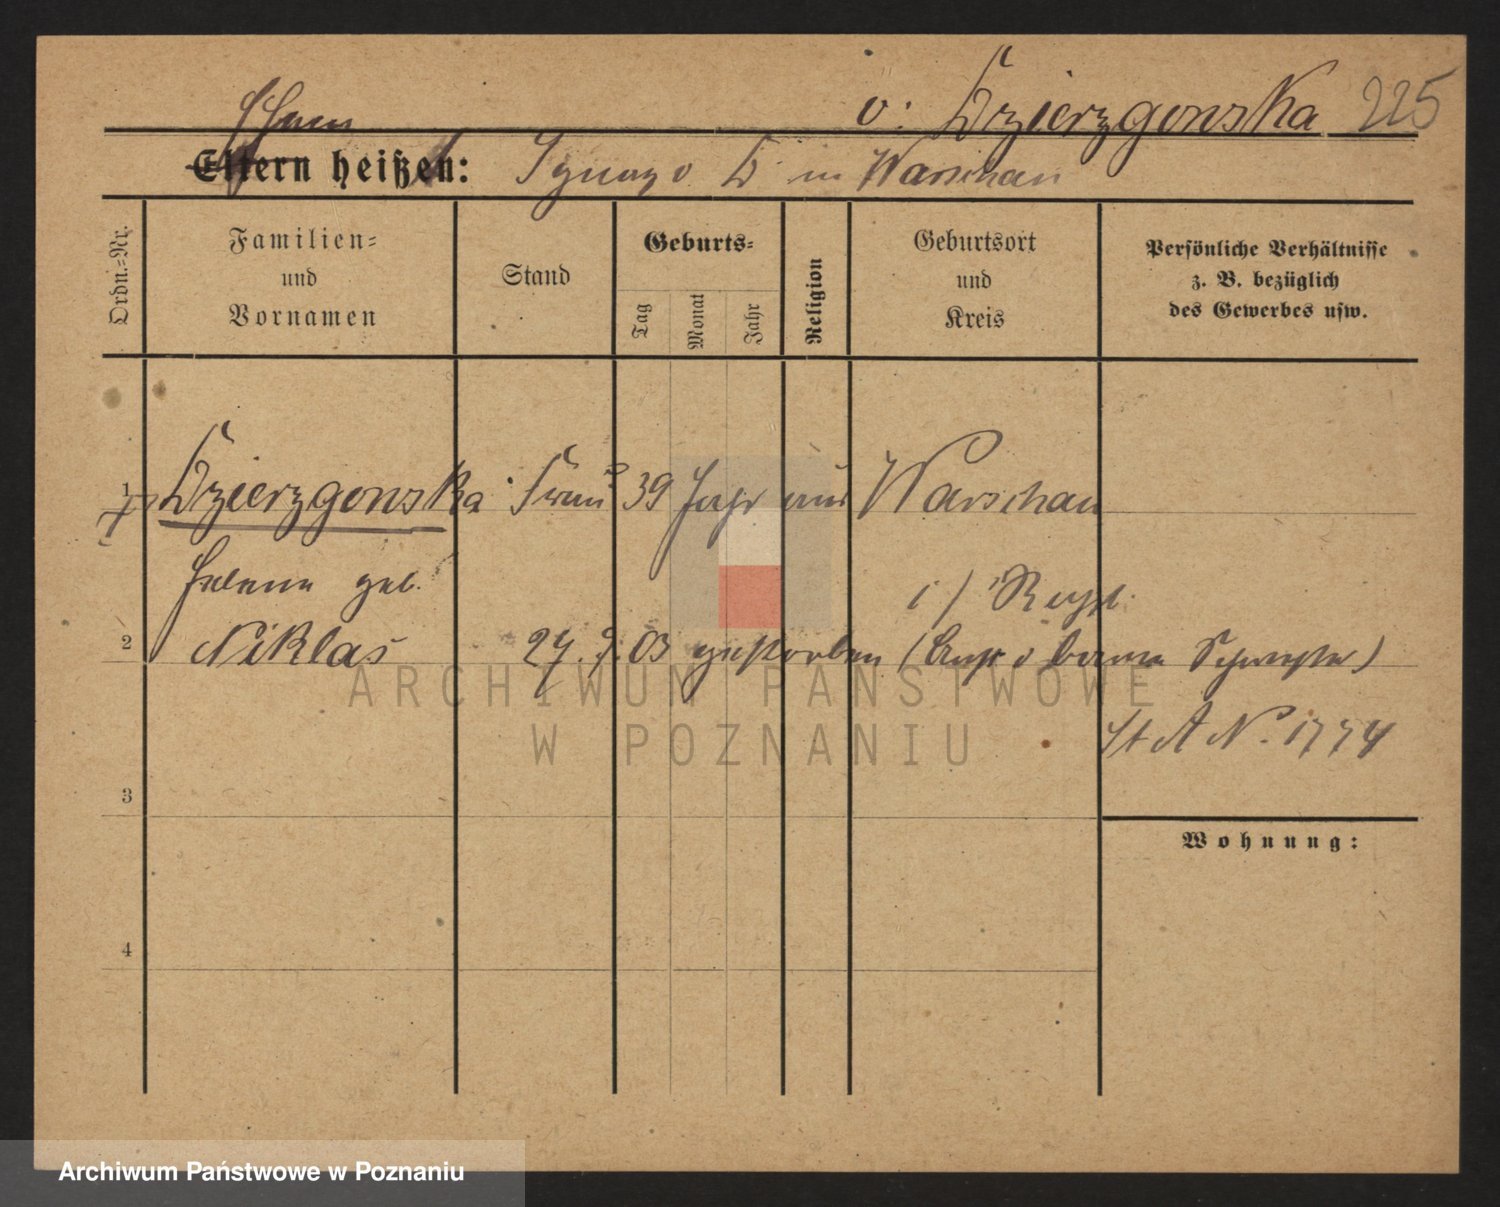 v. Dzierzgonska 225
Ehem
Eltern heißen: Ignaz v. D. in Warschau
Ordn.-Nr.
Familien-
und
Vornamen
Stand
Geburts-
Tag
Monat
Jahr
Religion
Geburtsort
und
Kreis
Persönliche Verhältnisse
z. B. bezüglich
des Gewerbes usw.
1 Dzierzgonska Frau 39 Jahr aus Warschau
Helene geb.
2 Niklas 27.9.03 gestorben Schwester)
St A N. 1774
3
Wohnung:
4
ARCHIWUM PAŃSTWOWE
W POZNANIU
Archiwum Państwowe w Poznaniu